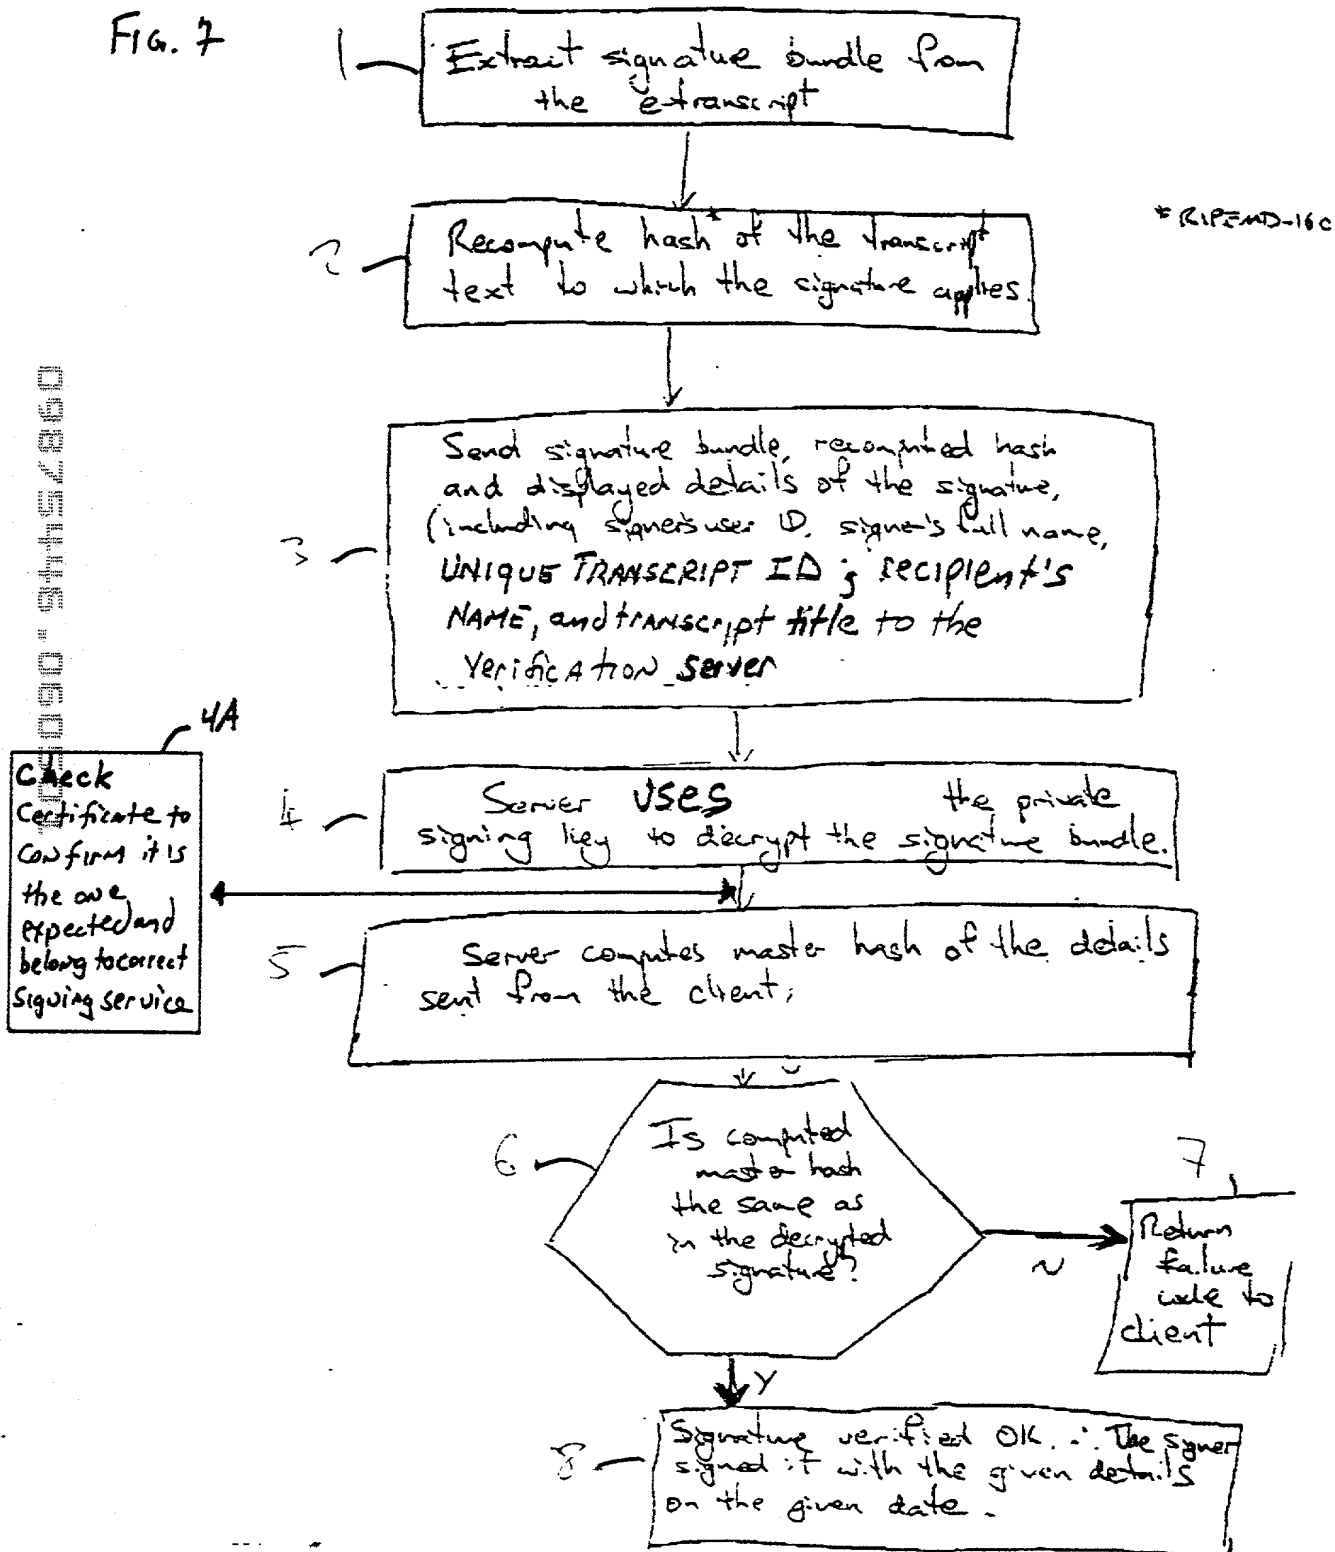 FIG. 7
1
Extract signature bundle from
the e-transcript
2
Recompute hash* of the transcript
text to which the signature applies.
* RIPEMD-160
3
Send signature bundle, recomputed hash
and displayed details of the signature,
(including signer's user ID, signer's full name,
UNIQUE TRANSCRIPT ID; recipient's
NAME, and transcript title to the
Verification server
4A
Check
Certificate to
confirm it is
the one
expected and
belong to correct
signing service
4
Server uses the private
signing key to decrypt the signature bundle.
5
Server computes master hash of the details
sent from the client;
6
Is computed
master hash
the same as
in the decrypted
signature?
N
7
Return
failure
code to
client
Y
8
Signature verified OK. ∴ The signer
signed it with the given details
on the given date.